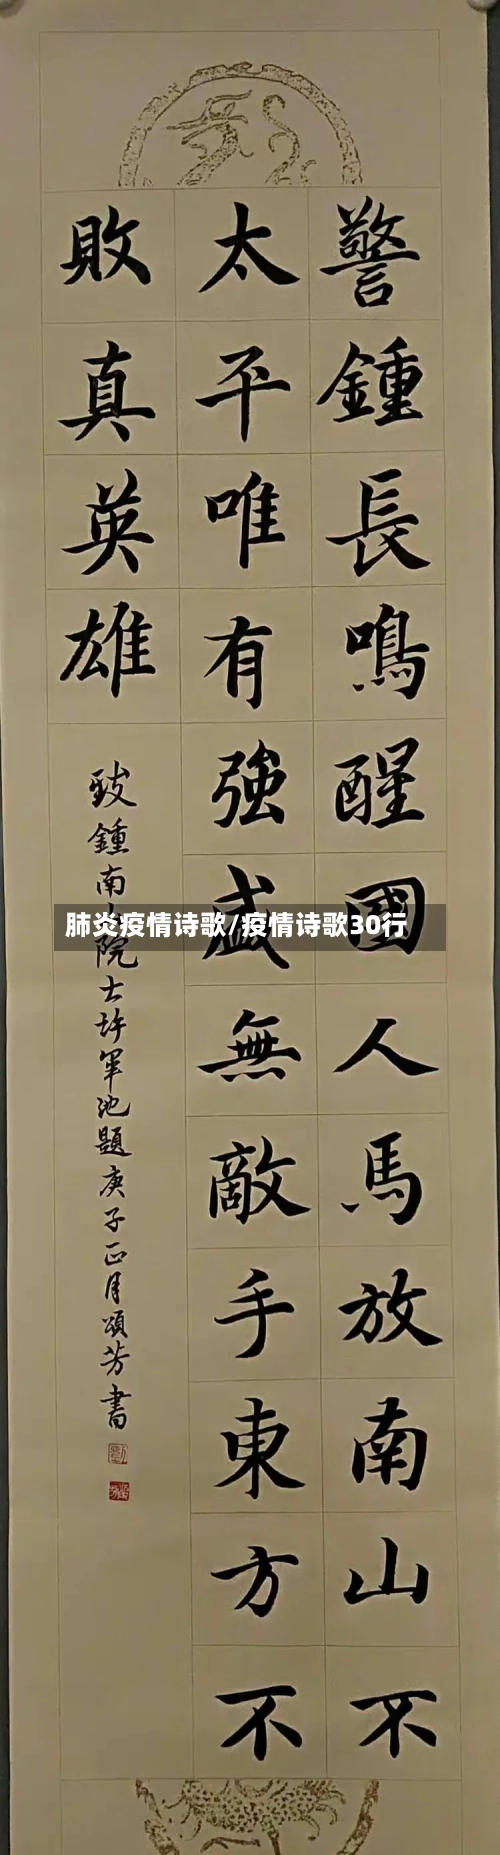 警鍾長鳴醒國人馬放南山不
太平唯有強盛無敵手東方不
敗真英雄
致鍾南山院士許軍池題庚子正月頌芳書
肺炎疫情诗歌/疫情诗歌30行